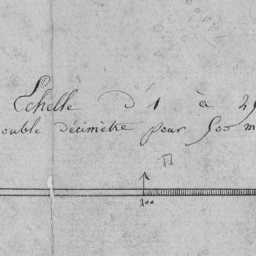 Echelle d' 1 à 2
double décimètre pour 500 m
100